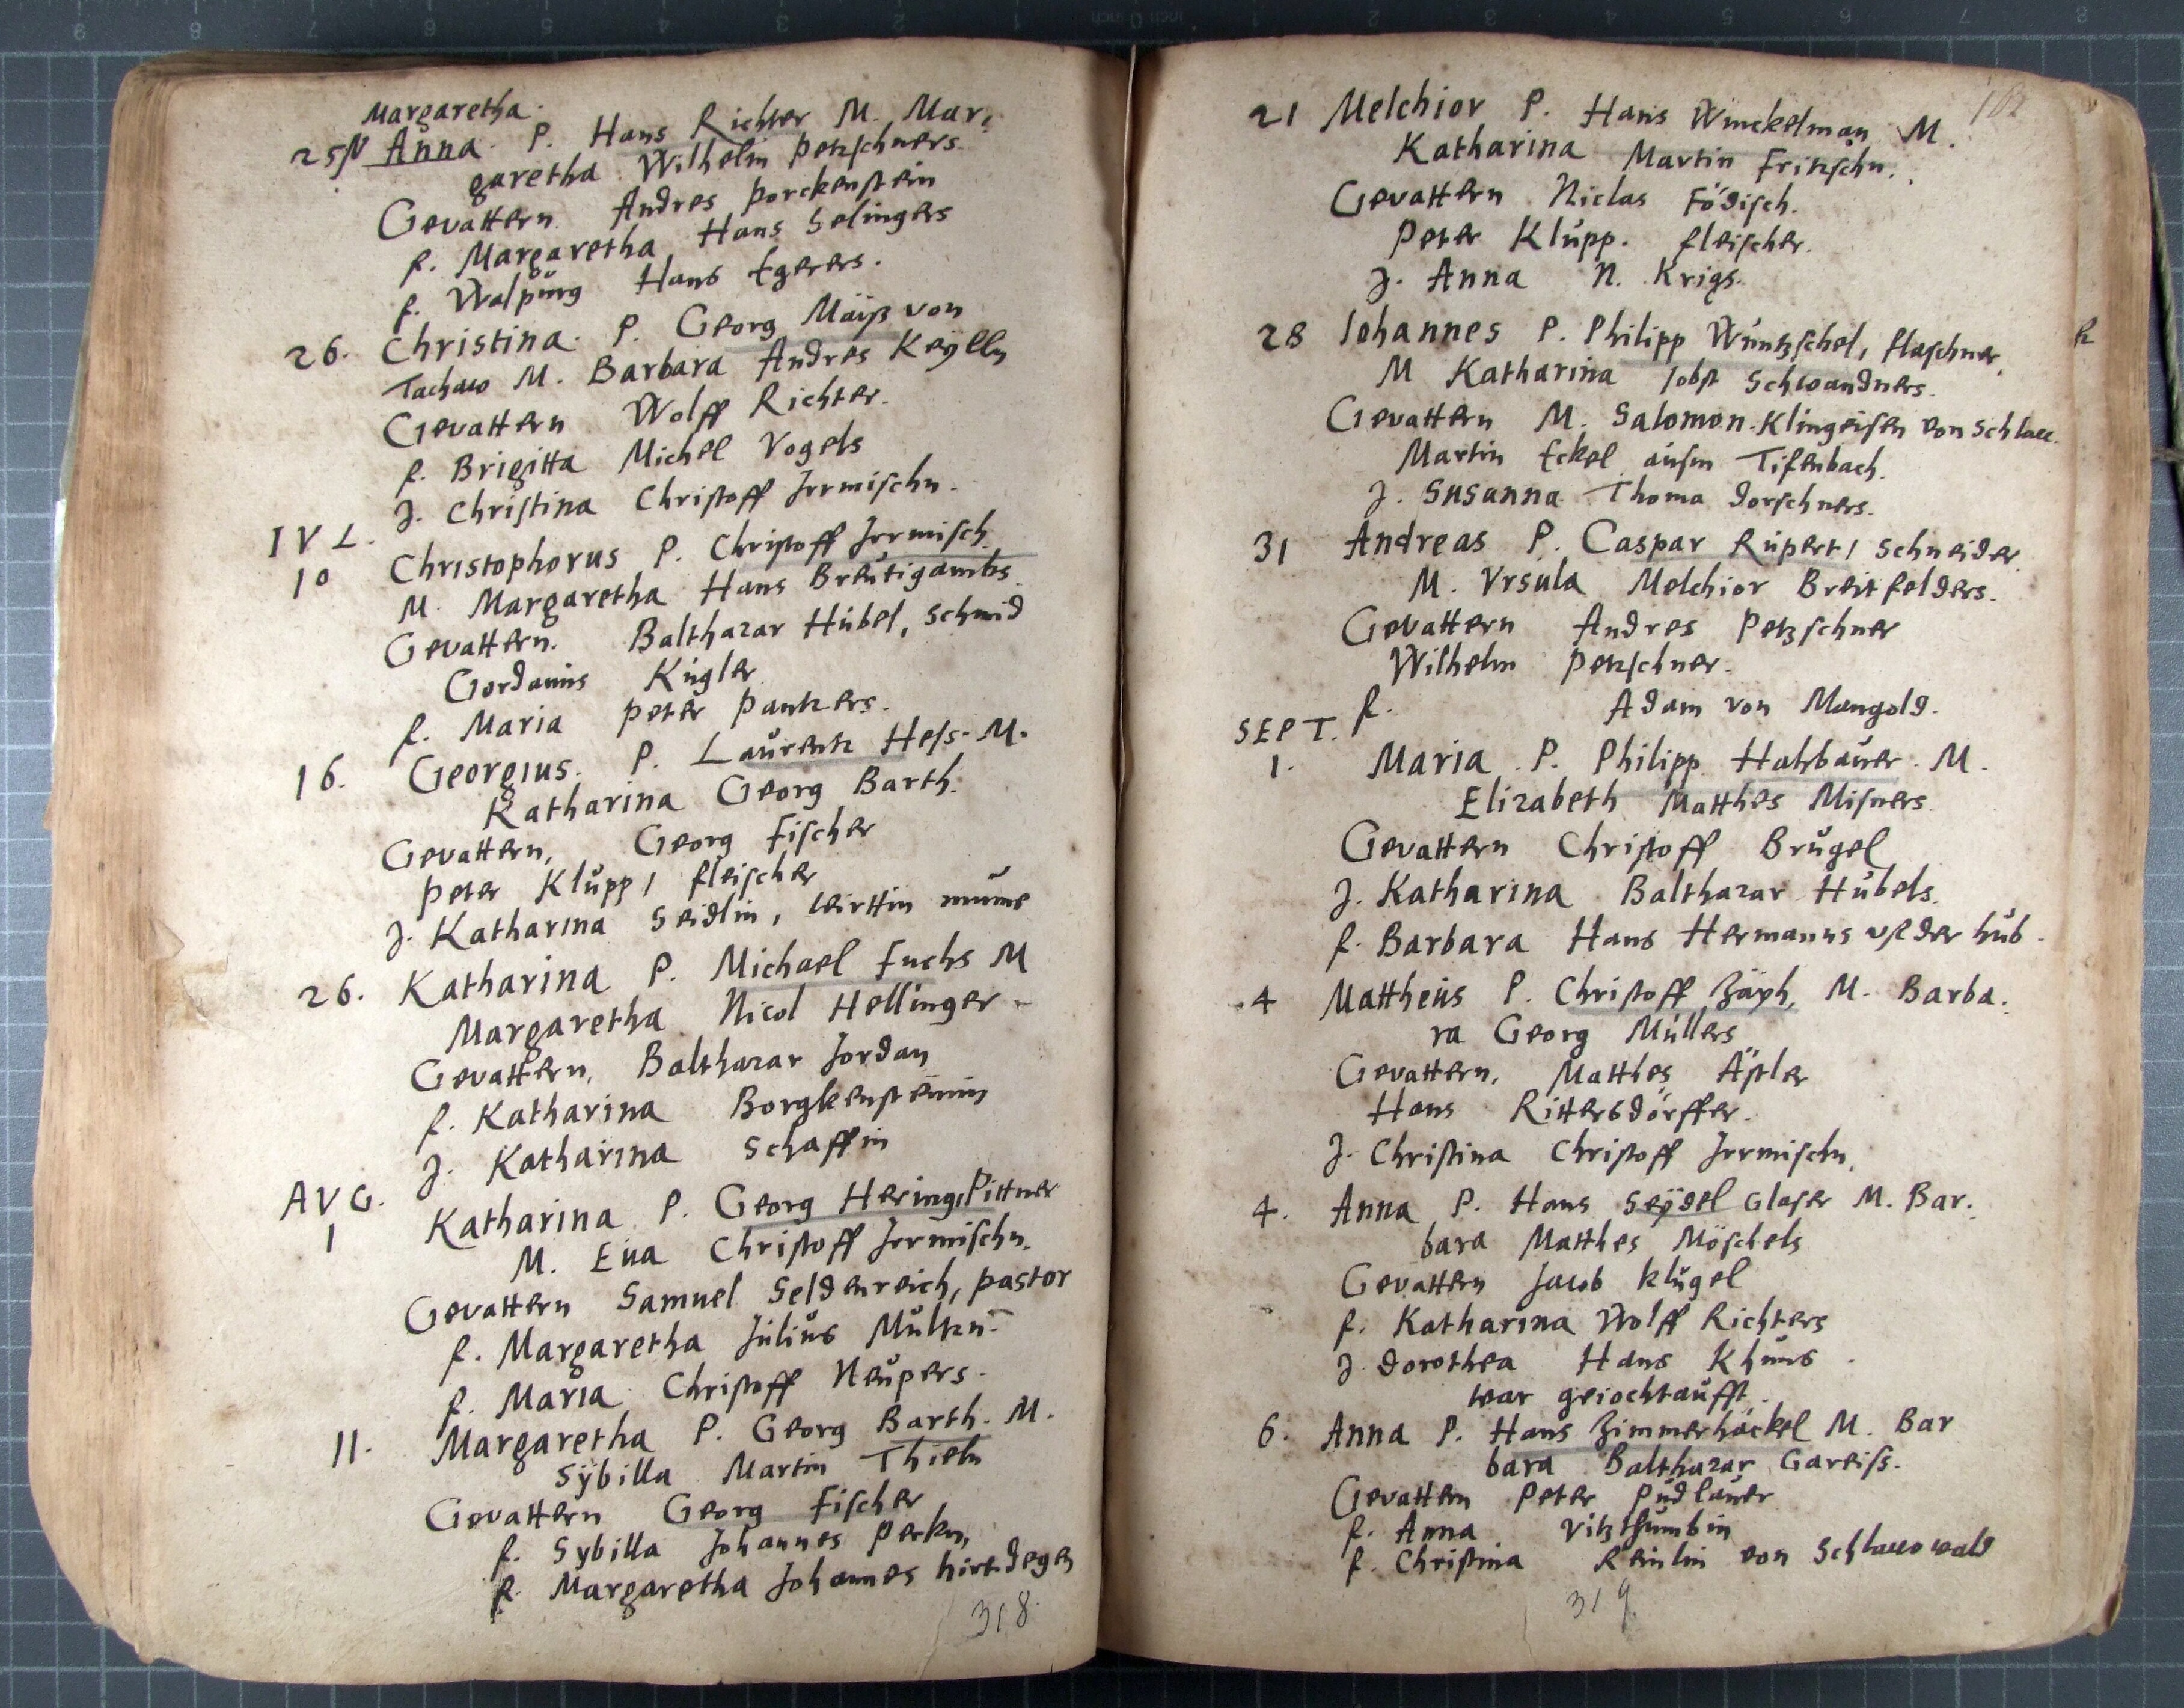 Margaretha.
25 Anna. P. Hans Richter M. Mar,
garetha Wilhelm Petzschners.
Gevattern. Andres Porckenstein
f. Margaretha Hans Selingers
f. Walpurg Hans Egerers.
26. Christina. P. Georg Mäiß von
Tachaw M. Barbara Andres Keylln
Gevattern Wolff Richter.
f. Brigitta Michel Vogels
J. Christina Christoff Jrmischn.
IVL.
10 Christophorus P. Christoff Jrmisch
M. Margaretha Hans Breutigambs.
Gevattern. Balthazar Hübel, Schmid
Gordanus Kugler
f. Maria Peter Pantzers.
16. Georgius. P. Laurentz Hess. M.
Katharina Georg Barth.
Gevattern, Georg Fischer
Peter Klupp / fleischer
J. Katharina Seidlin, wirttin mume
26. Katharina P. Michael Fuchs M
Margaretha Nicol Hellinger
Gevattern, Balthazar Jordan
f. Katharina Borgkensteinin
J. Katharina Schaffin
AVG.
1 Katharina P. Georg Hering, Pittner
M. Eua Christoff Jrmischn.
Gevattern Samuel Seldenreich, pastor
f. Margaretha Julius Multzn.
f. Maria Christoff Neupers.
11. Margaretha P. Georg Barth. M.
Sÿbilla Martin Thieln
Gevattern Georg Fischer
f. Sybilla Johannes Perkn,
f. Margaretha Johannes hirtdegen
318.
162
21 Melchior P. Hans Winckelman M.
Katharina Martin Fritzschn.
Gevattern Niclas Födisch.
Peter Klupp. fleischer.
J. Anna N. Krigs.
28 Johannes P. Philipp Wuntzschel, flaschner,
M Katharina Jobst Schwandners.
Gevattern M. Salomon Klingeisen von Schlack.
Martin Eckel ausm Tifenbach.
J. Susanna Thoma Dorschners.
31 Andreas P. Caspar Rupert / Schneider
M. Vrsula Melchior Breitfelders.
Gevattern Andres Petzschner
Wilhelm Petzschner.
f. Adam von Mangold.
SEPT.
1. Maria P. Philipp Holtzbauer. M.
Elizabeth Matthes Misners.
Gevattern Christoff Brugel
J. Katharina Balthazar Hubels.
f. Barbara Hans Hermanns vf der hub.
4 Mattheus P. Christoff Zäph, M. Barba.
ra Georg Müllers
Gevattern, Matthes Ästler
Hans Rittersdörffer.
J. Christina Christoff Jrmischn,
4. Anna P. Hans Seÿdel Glaser M. Bar.
bara Matthes Möschels
Gevattern Jacob Klugel
f. Katharina Wolff Richters
J. Dorothea Hans Khuns.
war geiochtaufft.
6. Anna P. Hans Zimmerhäckel M. Bar
bara Balthazar Gareiss.
Gevattern Peter Pudlauer
f. Anna Vitzthumbin
f. Christina Reinlin von Schlackowald
319